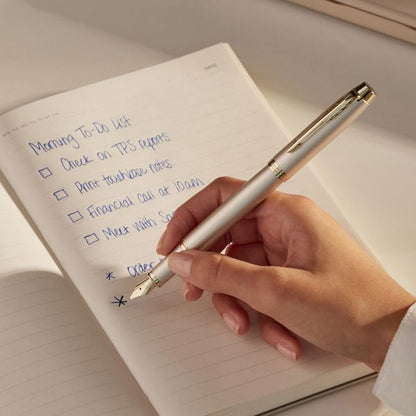 DATE
Morning To-Do List
☐ Check on TPS reports
☐ Print touchbase notes
☐ Financial call at 10am
☐ Meet with
* Order
*